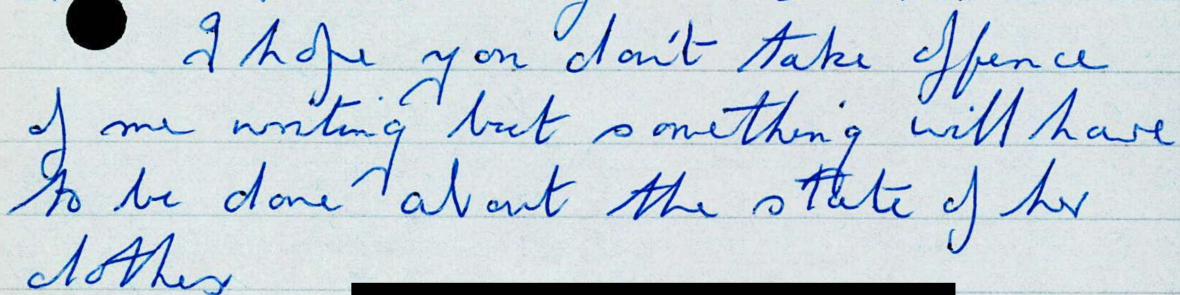 I hope you don't take offence
of me writing but something will have
to be done about the state of her
clothes